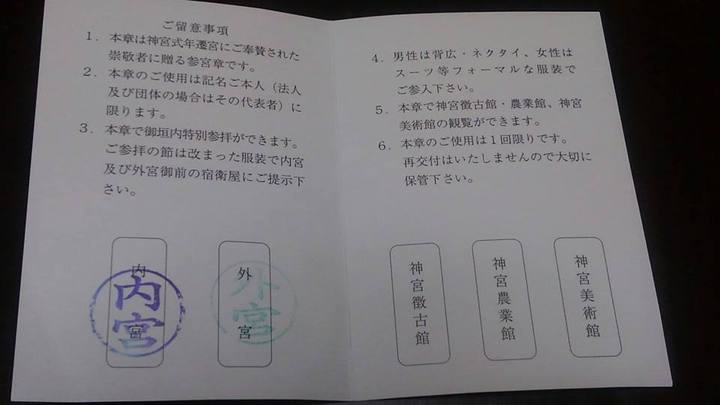 ご留意事項
1．本章は神宮式年遷宮にご奉賛された
崇敬者に贈る参宮章です。
2．本章のご使用は記名ご本人（法人
及び団体の場合はその代表者）に
限ります。
3．本章で御垣内特別参拝ができます。
ご参拝の節は改まった服装で内宮
及び外宮御前の宿衛屋にご提示下
さい。
内宮
内宮
外宮
外宮
4．男性は背広・ネクタイ、女性は
スーツ等フォーマルな服装で
ご参入下さい。
5．本章で神宮徴古館・農業館、神宮
美術館の観覧ができます。
6．本章のご使用は1回限りです。
再交付はいたしませんので大切に
保管下さい。
神宮徴古館
神宮農業館
神宮美術館